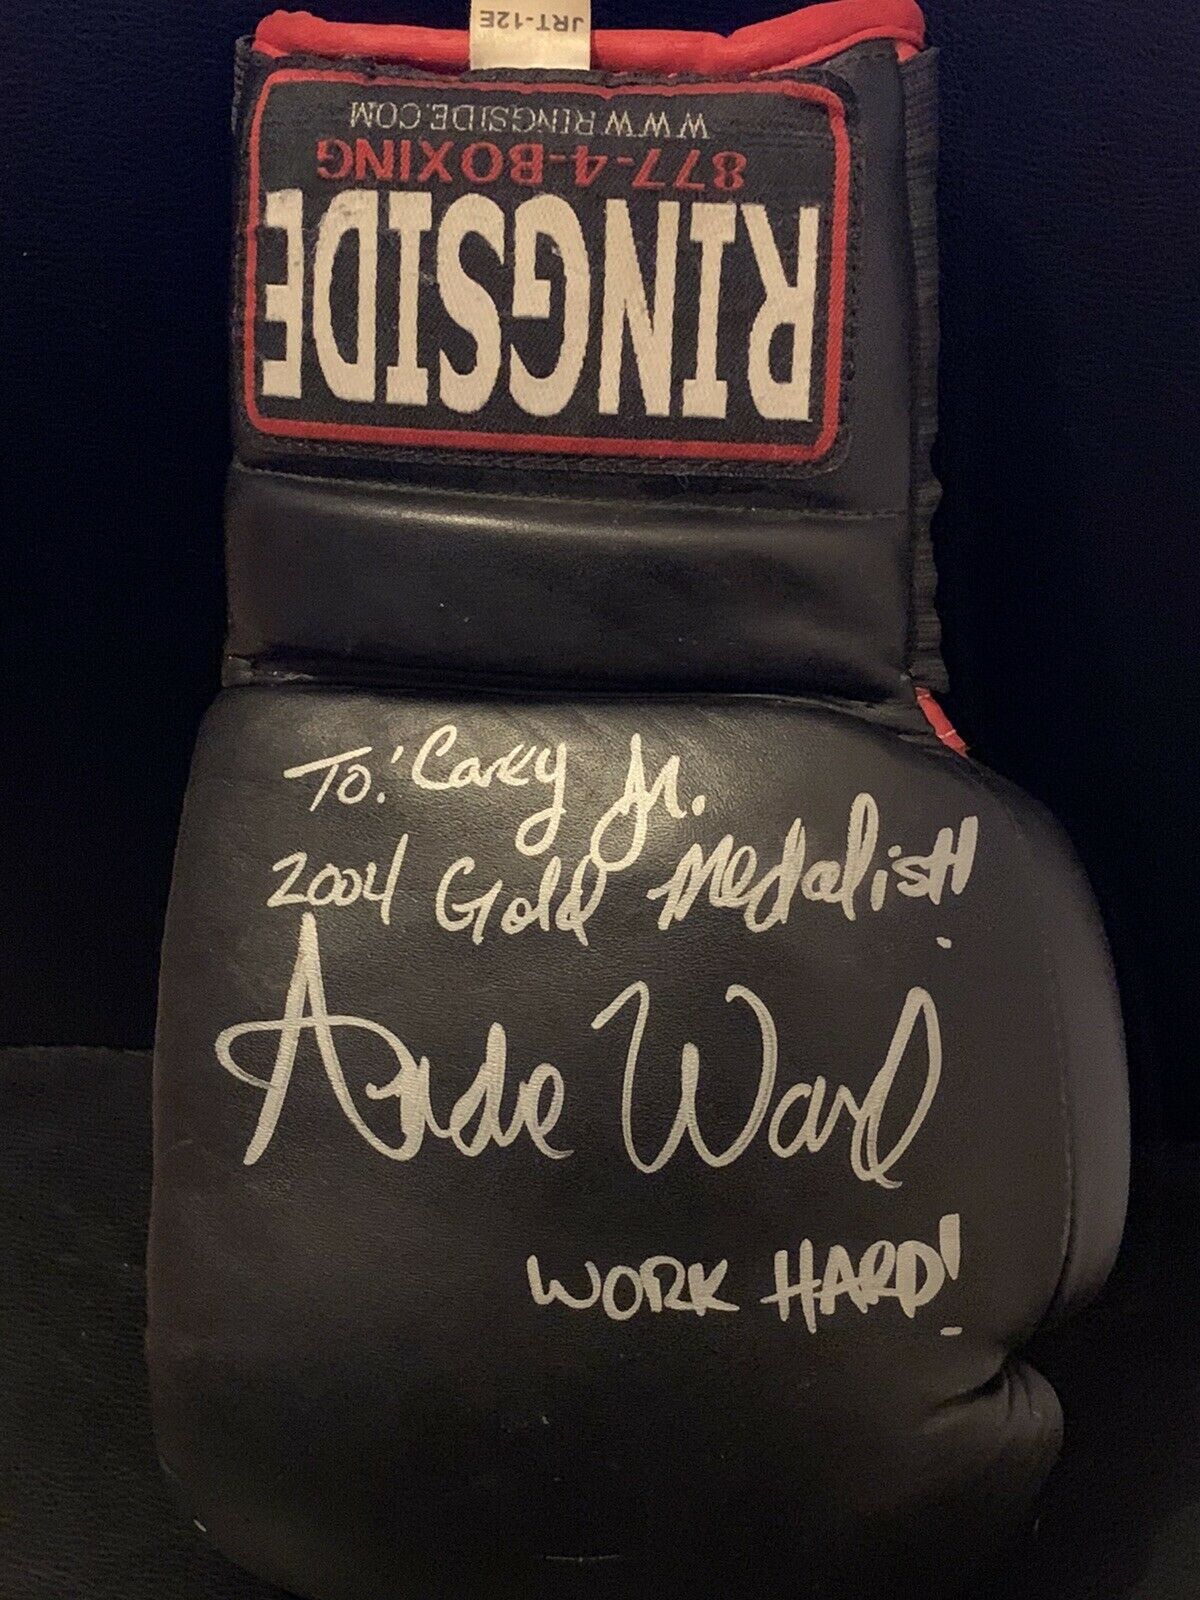 JRT-12E
WWW.RINGSIDE.COM
877-4-BOXING
RINGSIDE
To: Carey Jr.
2004 Gold Medalist!!
Andre Ward
WORK HARD!